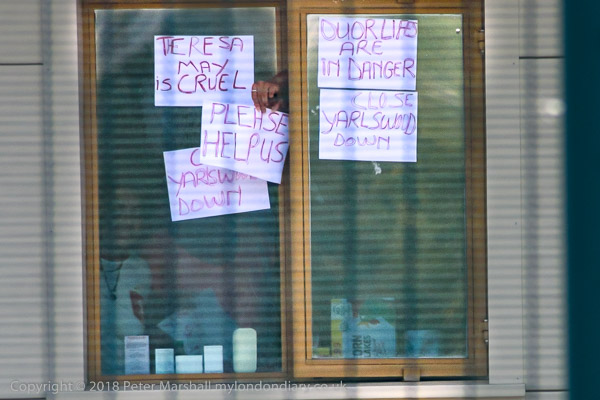 THERESA
MAY
is CRUEL
PLEASE
HELP US
YARLSWOOD
DOWN
OUORLIFS
ARE
IN DANGER
CLOSE
YARLSWOOD
DOWN
CORN
FLAKES
Copyright © 2018 Peter Marshall mylondondiary.co.uk